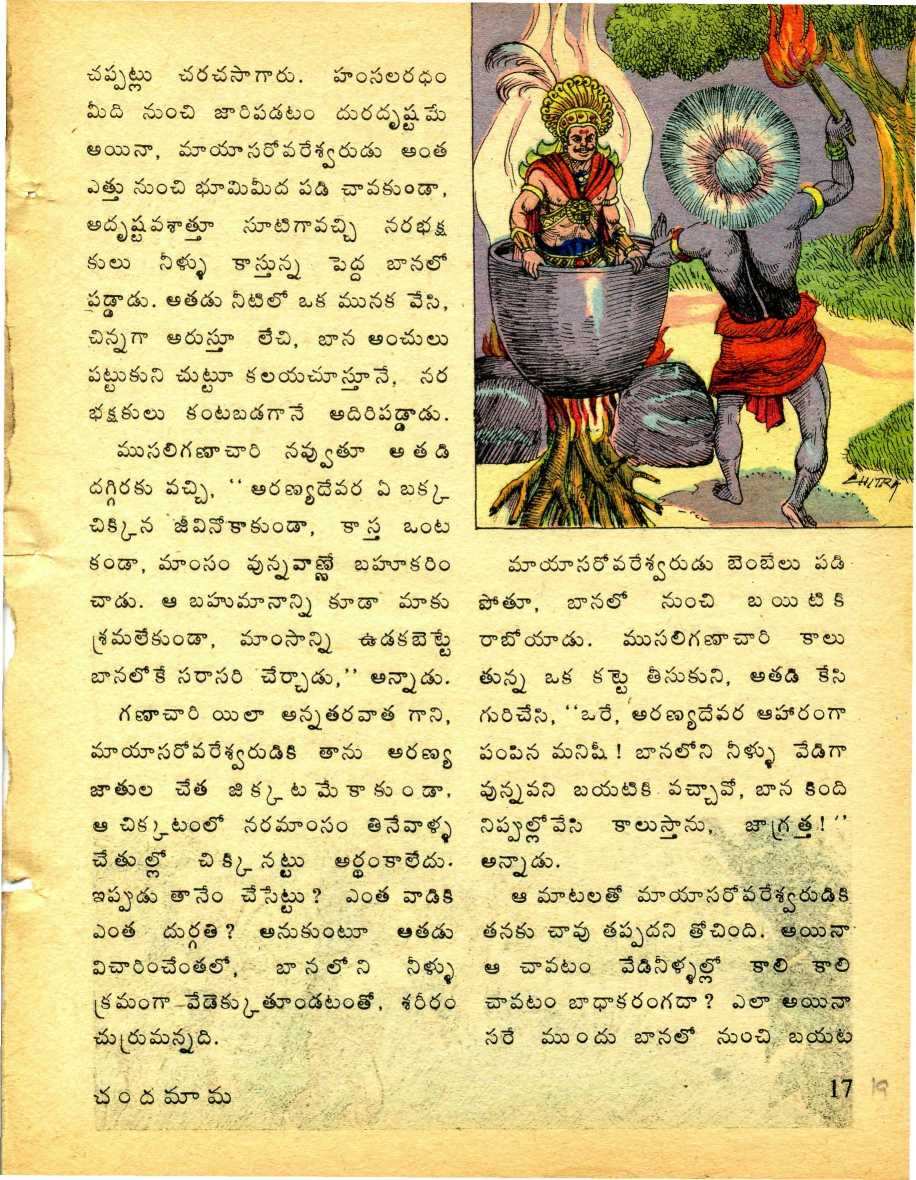 చప్పట్లు చరచసాగారు. హంసలరధం
మీది నుంచి జారిపడటం దురదృష్టమే
అయినా, మాయాసరోవరేశ్వరుడు అంత
ఎత్తు నుంచి భూమిమీద పడి చావకుండా,
అదృష్టవశాత్తూ సూటిగావచ్చి నరభక్ష
కులు నీళ్ళు కాస్తున్న పెద్ద బానలో
పడ్డాడు. అతడు నీటిలో ఒక మునక వేసి,
చిన్నగా అరుస్తూ లేచి, బాన అంచులు
పట్టుకుని చుట్టూ కలయచూస్తూనే, నర
భక్షకులు కంటబడగానే అదిరిపడ్డాడు.
ముసలిగణాచారి నవ్వుతూ అతడి
దగ్గిరకు వచ్చి, ‘‘అరణ్యదేవర ఏ బక్క
చిక్కిన జీవినోకాకుండా, కాస్త ఒంట
కండా, మాంసం వున్నవాణ్ణే బహూకరిం
చాడు. ఆ బహుమానాన్ని కూడా మాకు
శ్రమలేకుండా, మాంసాన్ని ఉడకబెట్టే
బానలోకే సరాసరి చేర్చాడు,’’ అన్నాడు.
గణాచారి యిలా అన్నతరవాత గాని,
మాయాసరోవరేశ్వరుడికి తాను అరణ్య
జాతుల చేత జిక్కటమేకాకుండా,
ఆ చిక్కటంలో నరమాంసం తినేవాళ్ళ
చేతుల్లో చిక్కినట్టు అర్థంకాలేదు.
ఇప్పుడు తానేం చేసేట్టు? ఎంత వాడికి
ఎంత దుర్గతి? అనుకుంటూ ఆతడు
విచారించేంతలో, బానలోని నీళ్ళు
క్రమంగా వేడెక్కుతూండటంతో, శరీరం
చుర్రుమన్నది.
CHITRA
మాయాసరోవరేశ్వరుడు బెంబేలు పడి
పోతూ, బానలో నుంచి బయిటికి
రాబోయాడు. ముసలిగణాచారి కాలు
తున్న ఒక కట్టె తీసుకుని, అతడి కేసి
గురిచేసి, ‘‘ఒరే, అరణ్యదేవర ఆహారంగా
పంపిన మనిషీ! బానలోని నీళ్ళు వేడిగా
వున్నవని బయటికి వచ్చావో, బాన కింది
నిప్పుల్లోవేసి కాలుస్తాను, జాగ్రత్త!’’
అన్నాడు.
ఆ మాటలతో మాయాసరోవరేశ్వరుడికి
తనకు చావు తప్పదని తోచింది. అయినా
ఆ చావటం వేడినీళ్ళల్లో కాలి కాలి
చావటం బాధాకరంగదా? ఎలా అయినా
సరే ముందు బానలో నుంచి బయట
చందమామ
17 19